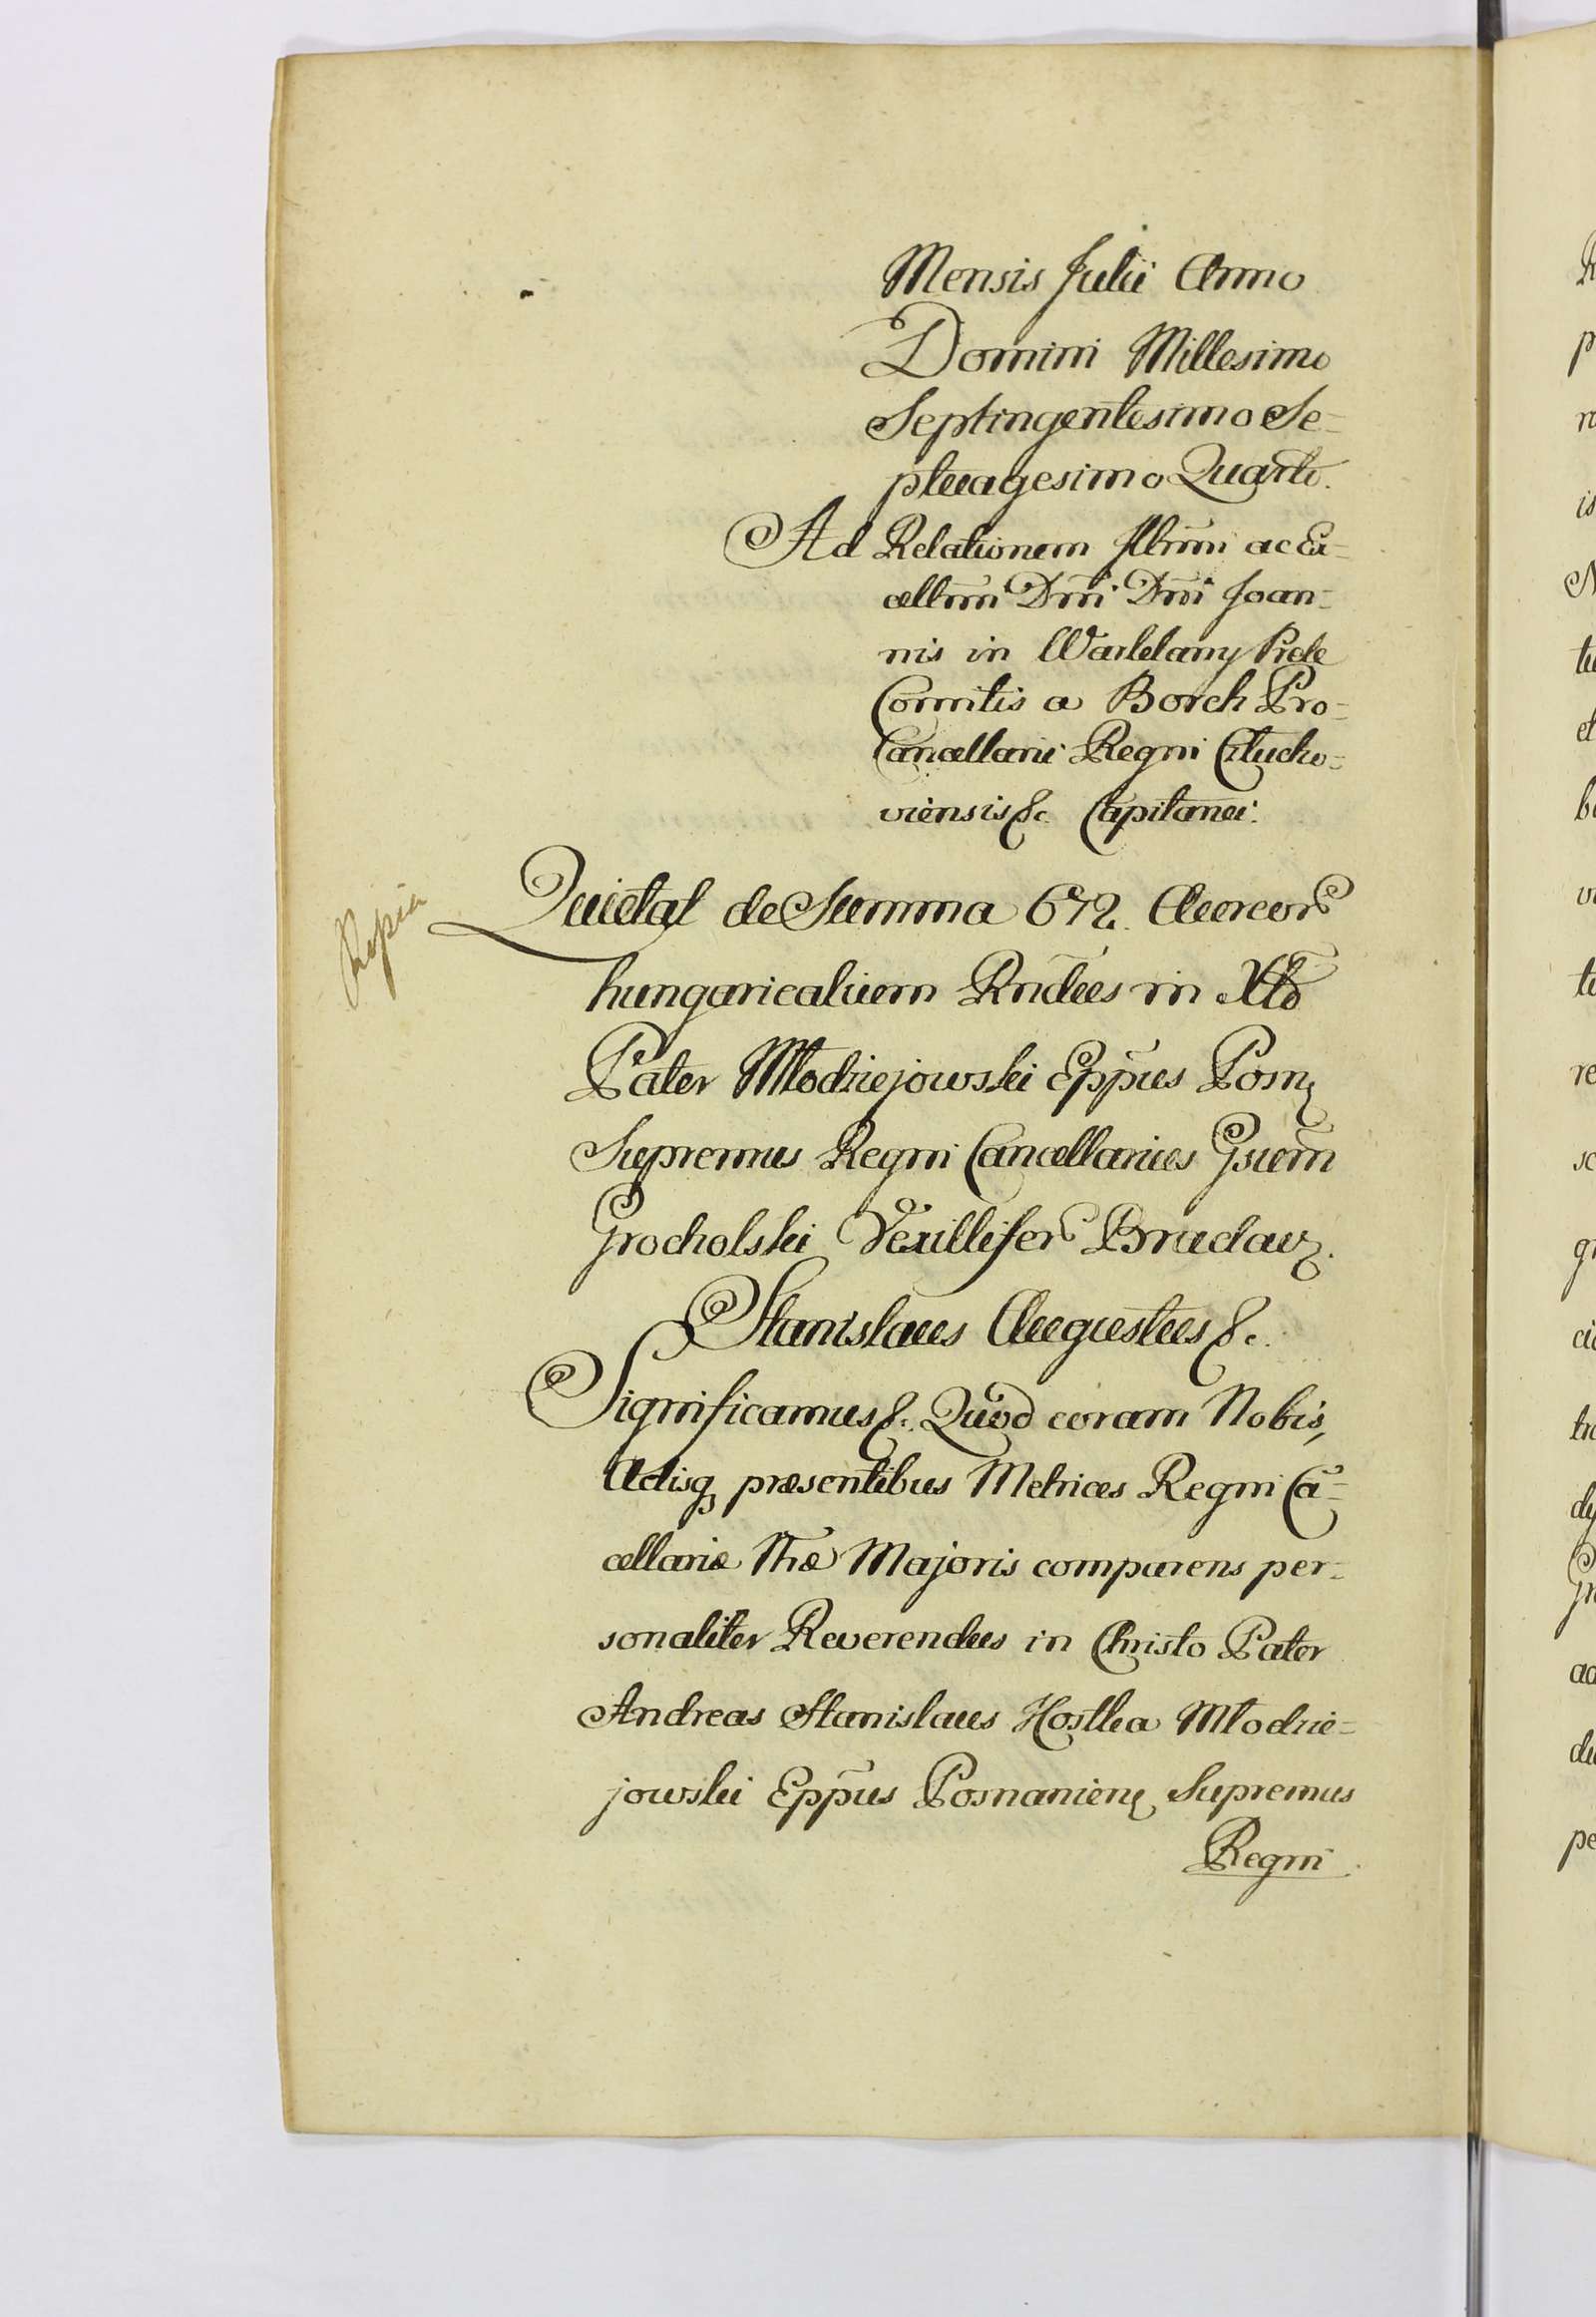 Mensis Julii Anno
Domini Millesimo
Septingentesimo Se=
ptuagesimo Quarto.
Ad Relationem Illrmi ac Ex=
cellmi Dni Dni Joan=
nis in Warklany Prele
Comitis a Borch Pro=
Cancellarii Regni Lucho=
viensis &c. Capitanei.
Kopia
Quietat de Summa 672. Aureor
hungaricalium Rndus in Xto
Pater Młodziejowski Eppus Posn
Supremus Regni Cancellarius Gsum
Grocholski Vexillifer Braclav.
Stanislaus Augustus &c.
Significamus &c. Quod coram Nobis,
Actisq præsentibus Metrices Regni Cā=
cellariæ Nræ Majoris comparens per=
sonaliter Reverendus in Christo Pater
Andreas Stanislaus Kostka Młodzie=
jowski Eppus Posnanien Supremus
Regni